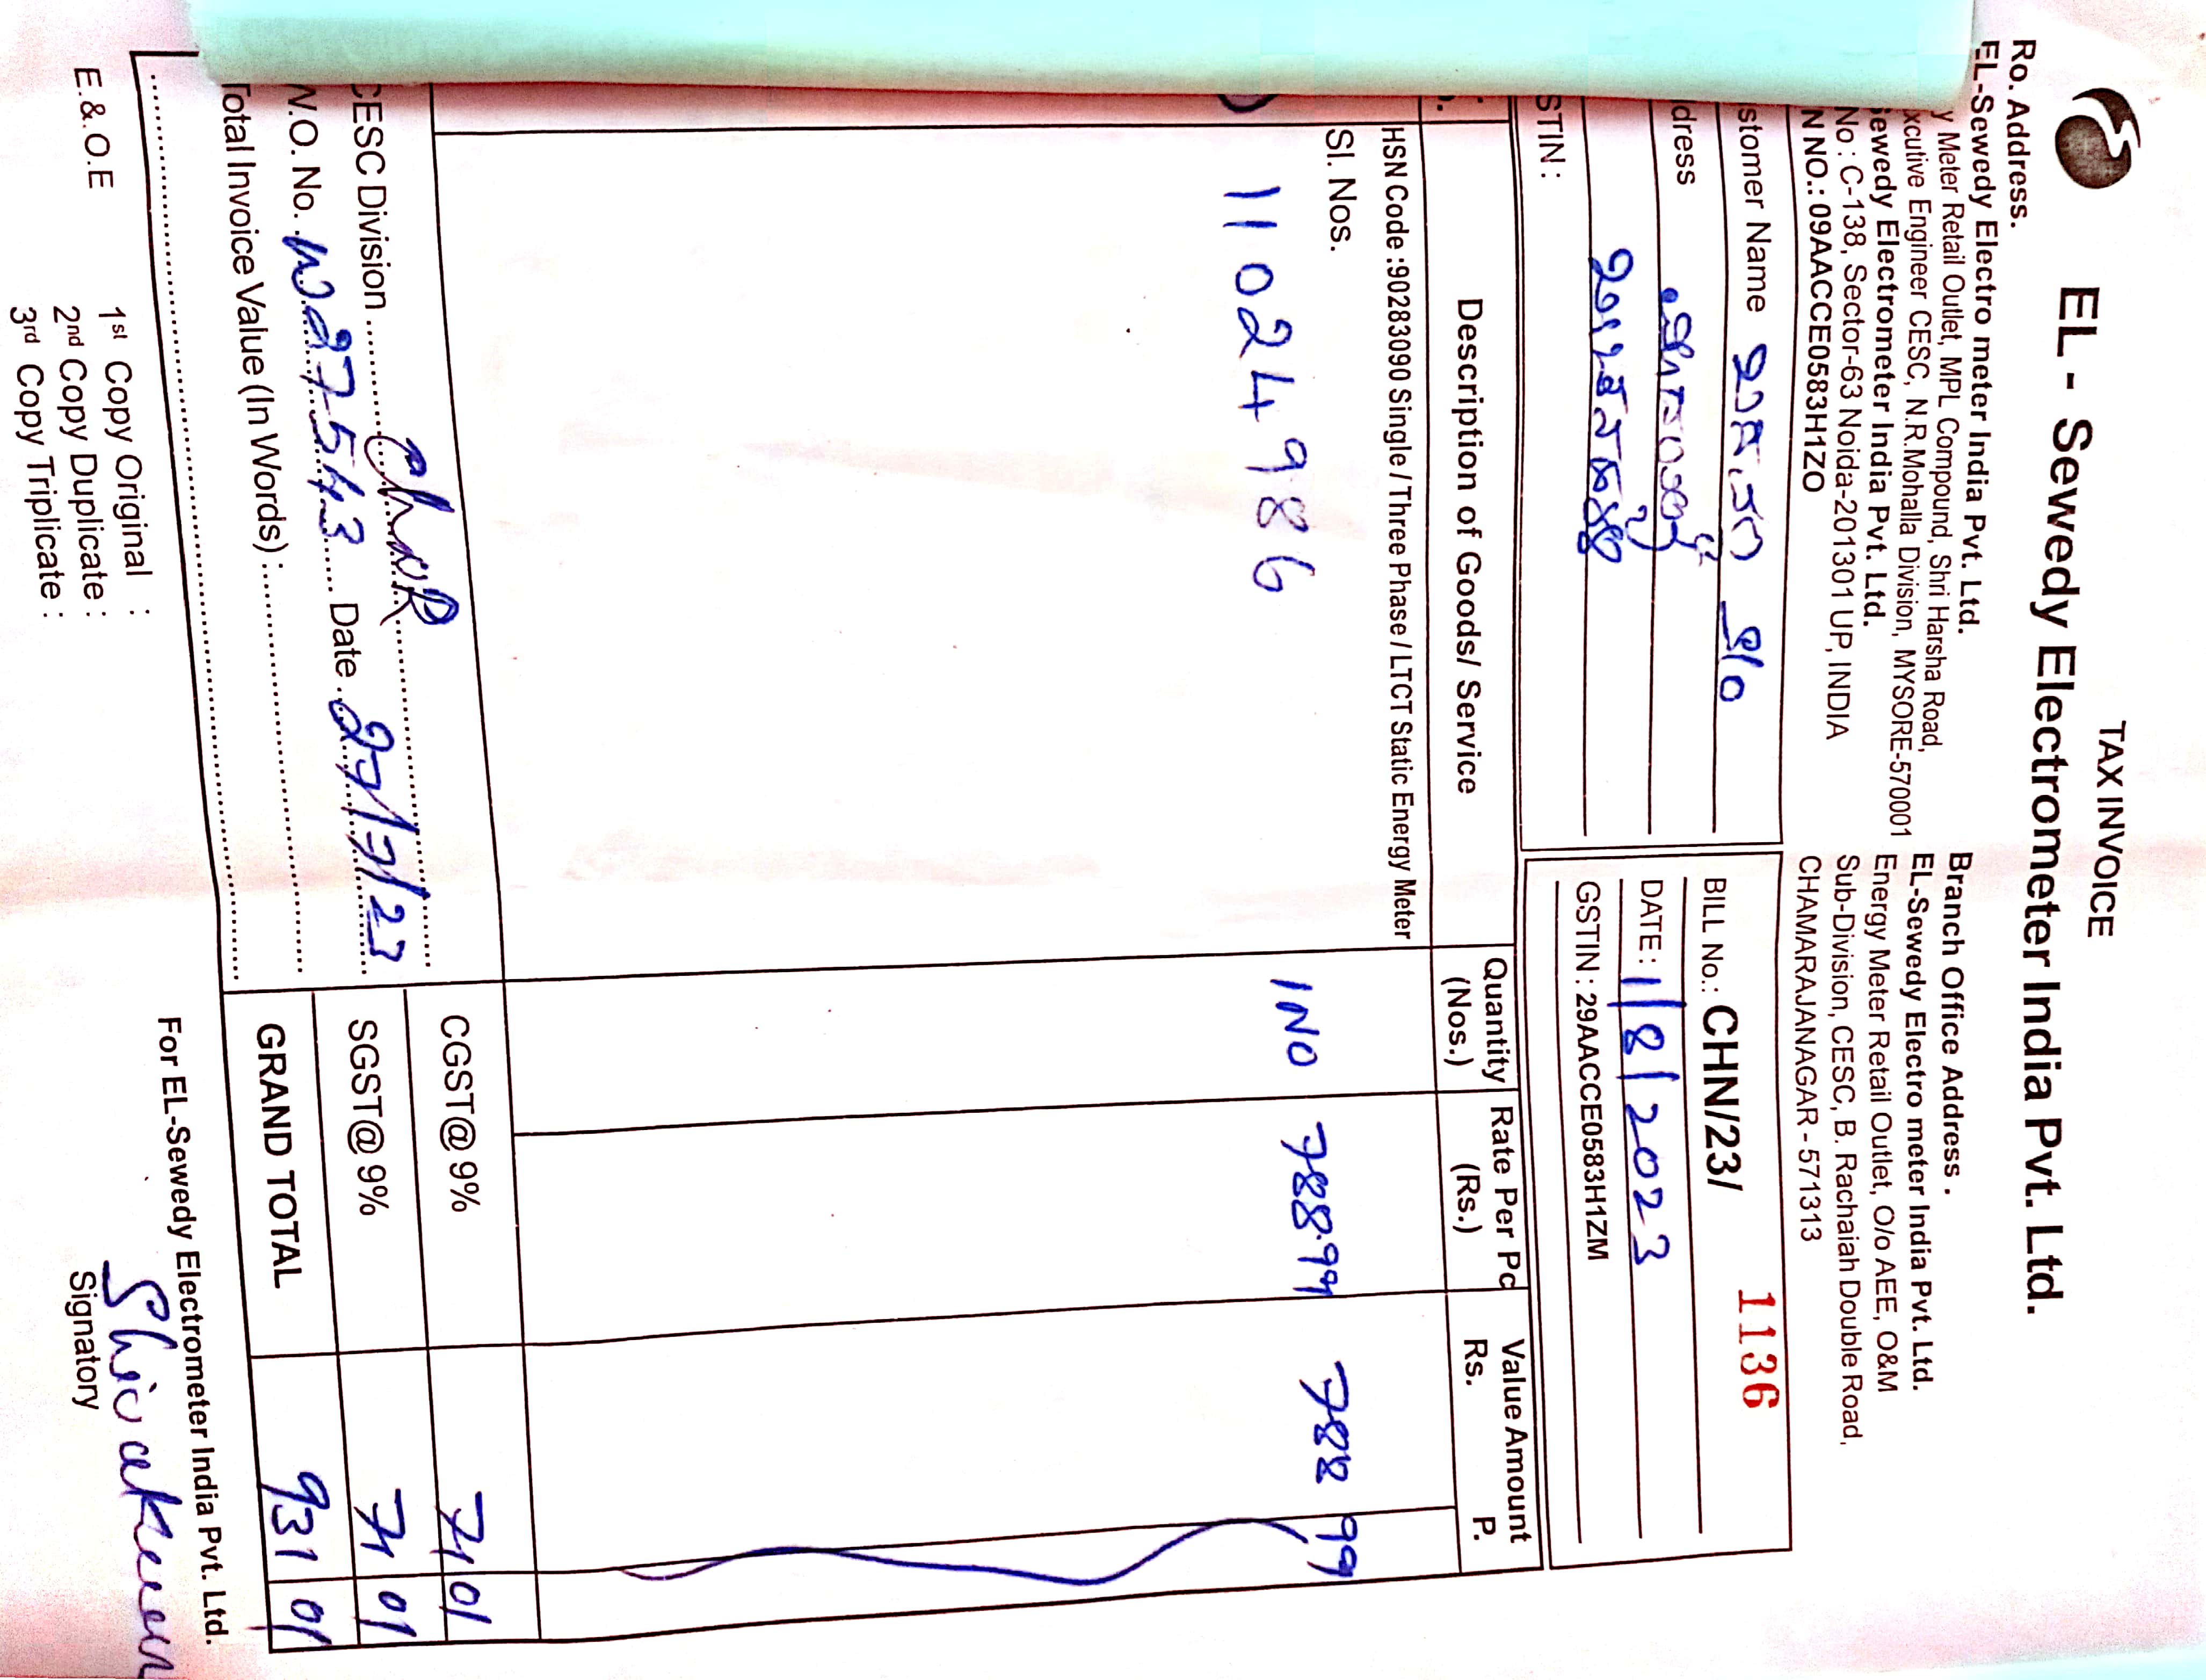 TAX INVOICE
EL - Sewedy Electrometer India Pvt. Ltd.
Ro. Address.
EL-Sewedy Electro meter India Pvt. Ltd.
y Meter Retail Outlet, MPL Compound, Shri Harsha Road,
xcutive Engineer CESC, N.R.Mohalla Division, MYSORE-570001
Sewedy Electrometer India Pvt. Ltd.
No : C-138, Sector-63 Noida-201301 UP, INDIA
N NO.: 09AACCE0583H1ZO
Branch Office Address .
EL-Sewedy Electro meter India Pvt. Ltd.
Energy Meter Retail Outlet, O/o AEE, O&M
Sub-Division, CESC, B. Rachaiah Double Road,
CHAMARAJANAGAR - 571313
stomer Name
dress
STIN :
1136
BILL No.: CHN/23/
DATE : 1/8/2023
GSTIN : 29AACCE0583H1ZM
Description of Goods/ Service
Quantity (Nos.)
Rate Per Pc (Rs.)
Value Amount
Rs. P.
HSN Code :90283090 Single / Three Phase / LTCT Static Energy Meter
Sl. Nos.
11024986 1NO 788.99 788 99
CESC Division ChNR
W.O. No. W27543 Date 27/7/23
Total Invoice Value (In Words) :
CGST@ 9% 71 01
SGST@ 9% 71 01
GRAND TOTAL 931 01
E.&.O.E
1st Copy Original :
2nd Copy Duplicate :
3rd Copy Triplicate :
For EL-Sewedy Electrometer India Pvt. Ltd.
Signatory